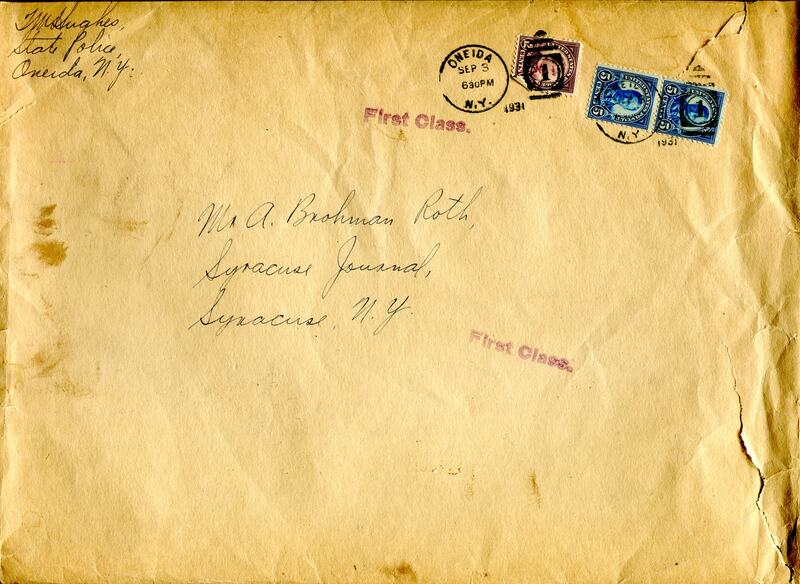 T.M. Hughes,
State Police,
Oneida, N.Y.
ONEIDA
SEP 3
630PM
N.Y.
1931
First Class.
N.Y.
1931
Mr A. Brohman Roth,
Syracuse Journal,
Syracuse, N.Y.
First Class.